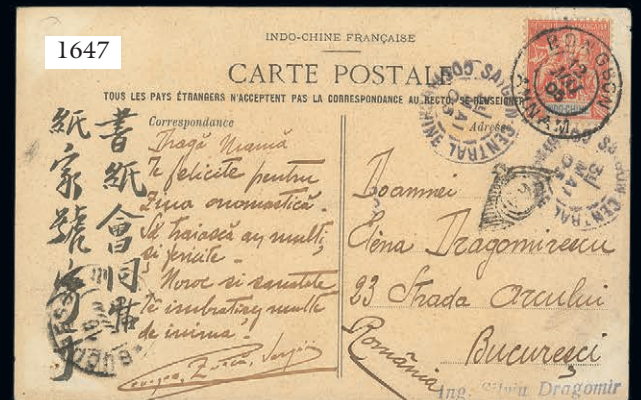 1647
INDO-CHINE FRANÇAISE
CARTE POSTALE
TOUS LES PAYS ÉTRANGERS N'ACCEPTENT PAS LA CORRESPONDANCE AU RECTO, SE RENSEIGNER
Correspondance
Adresse
Dragă Mamă
Te felicite pentru
Ziua onomastică.
Să traiască ay multi
si fericite –
Noroc si sanatate
Te imbratisez multe
de inima!
Doamnei
Elena Dragomirescu
23 Strada Arcului
Bucuresci
România
Ing. Silviu Dragomir
書紙會同
紙家號
BONGSON
ANNAM
INDO-CHINE
SAIGON CENTRAL
COCHINCHINE
SAIGON CENTRAL